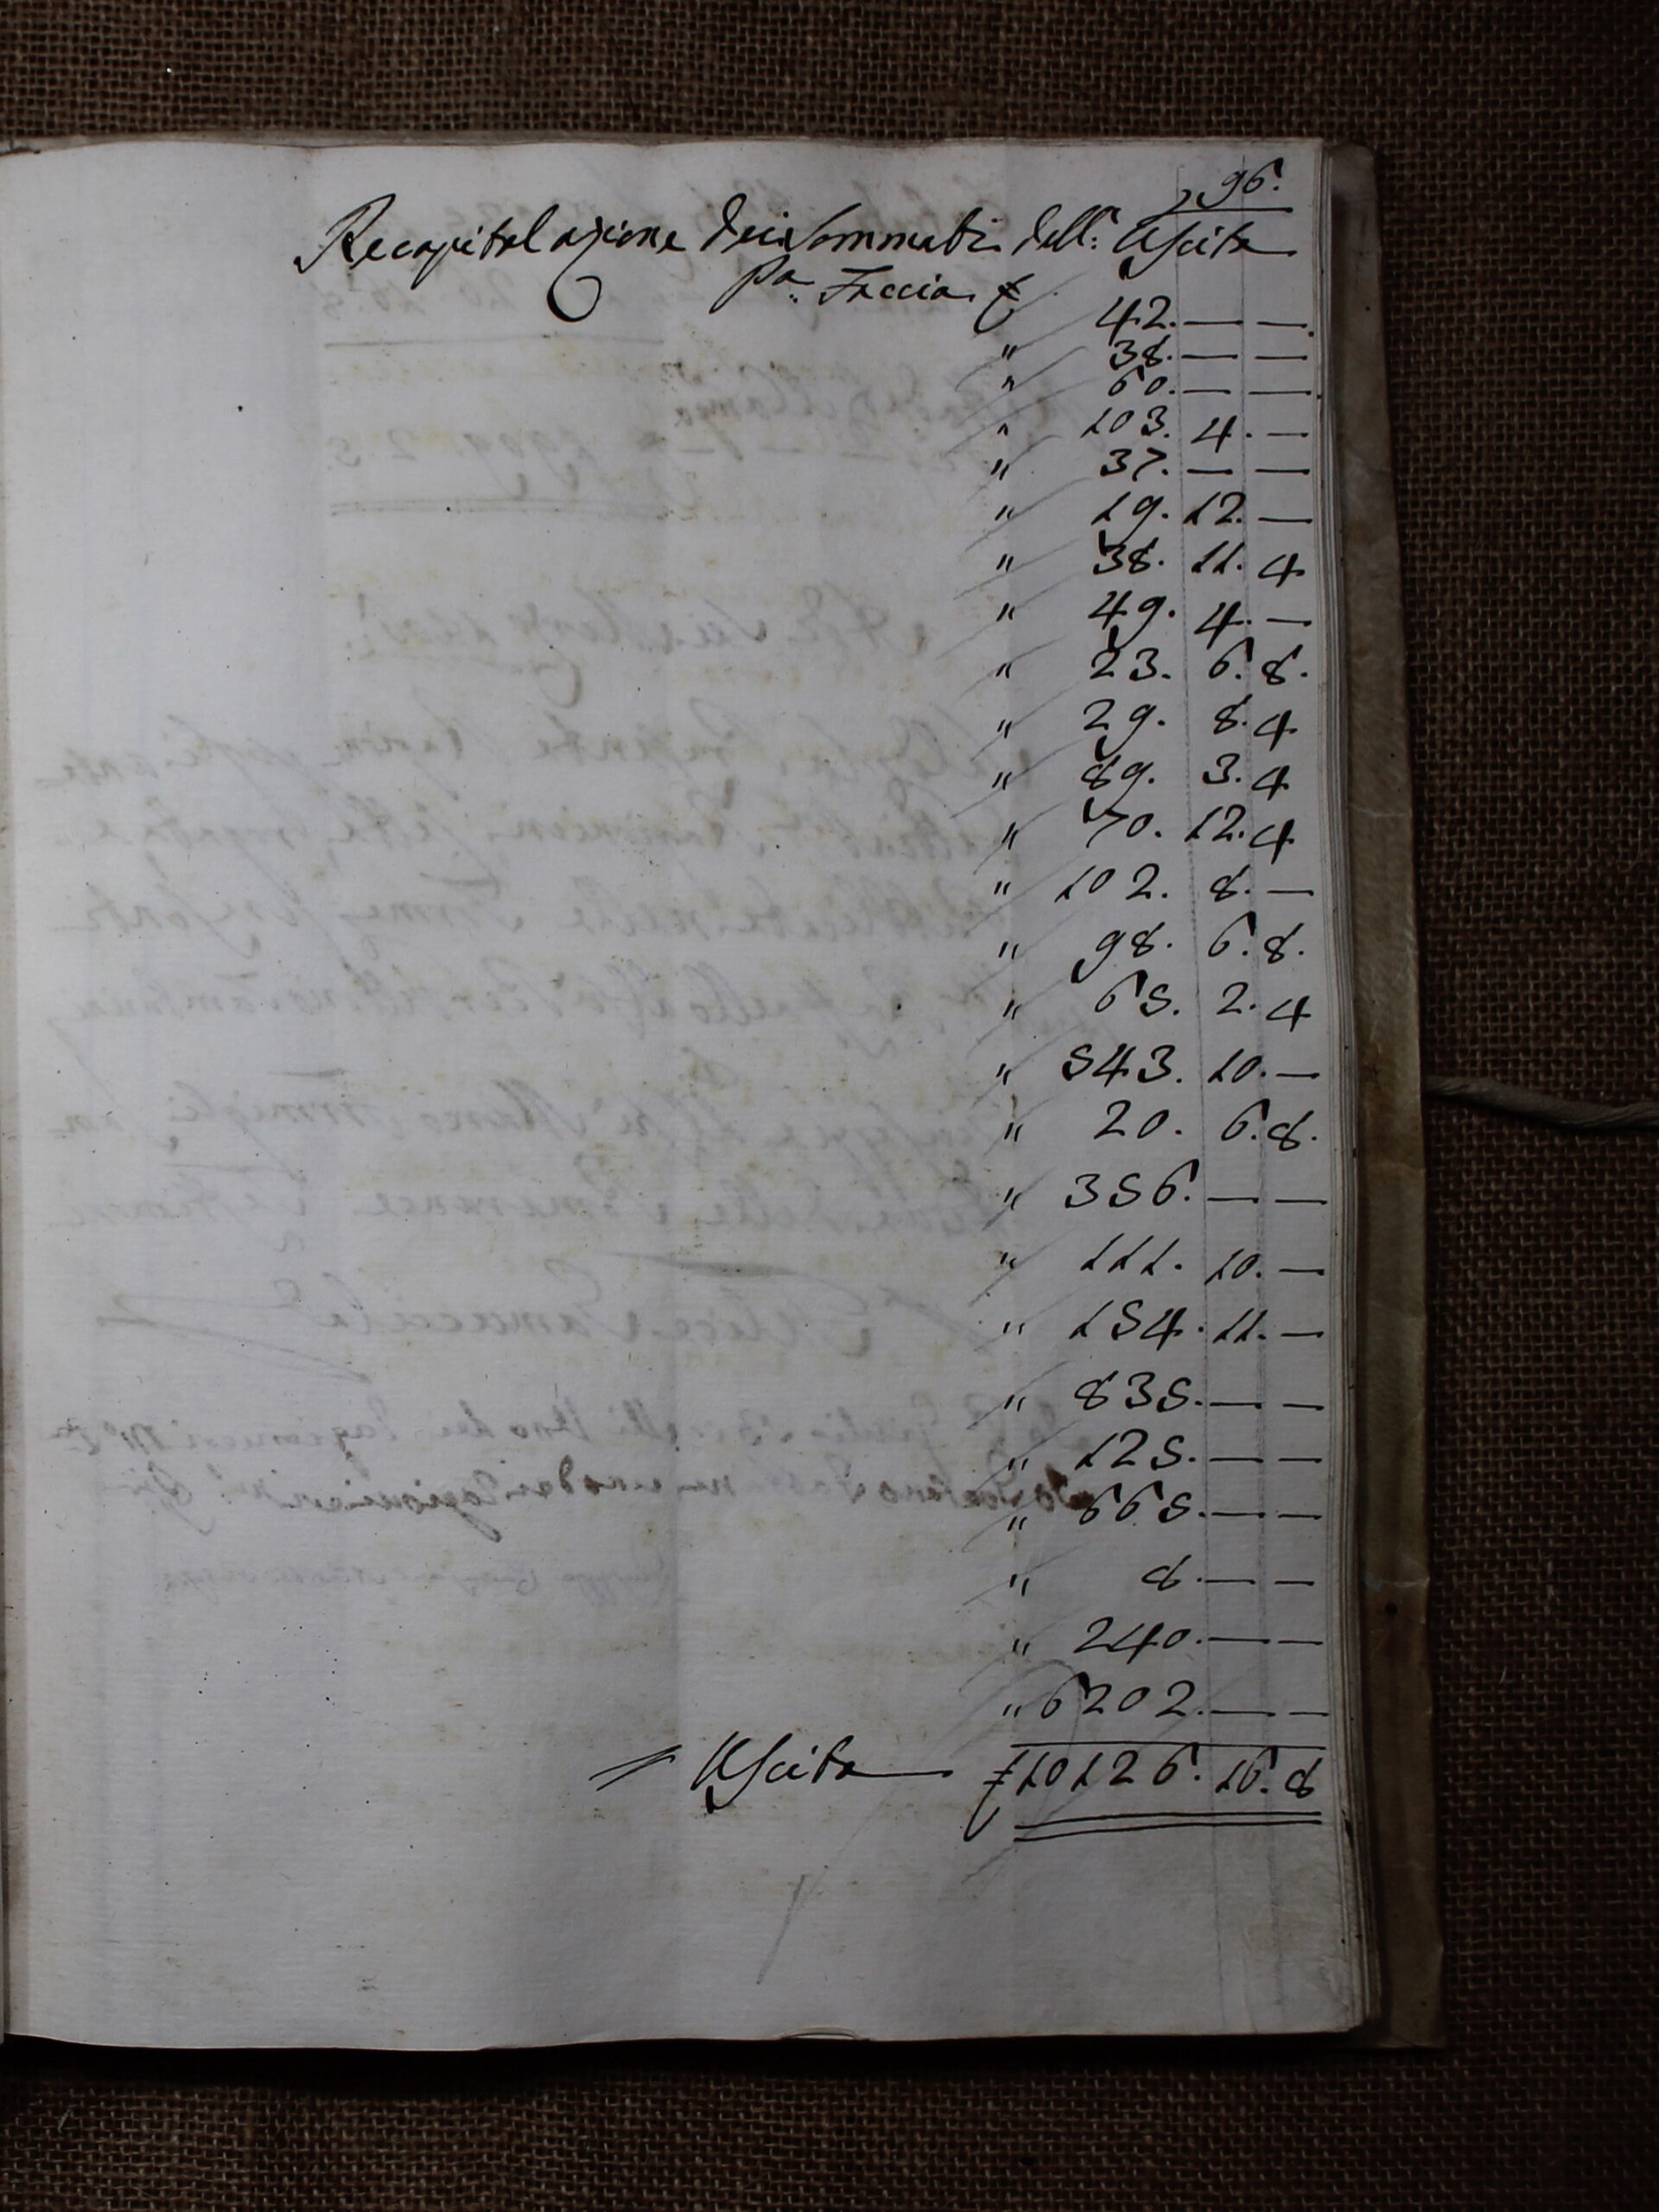 96.
Recapitolazione dei Sommati dell': Uscita
Pa: Faccia £ 42. — —
" 38. — —
" 60. — —
" 103. 4. —
" 37. — —
" 19. 12. —
" 38. 11. 4
" 49. 4. —
" 23. 6. 8.
" 29. 8. 4
" 89. 3. 4
" 70. 12. 4
" 102. 8. —
" 98. 6. 8.
" 65. 2. 4
" 543. 10. —
" 20. 6. 8.
" 356. — —
" 111. 10. —
" 154. 11. —
" 835. — —
" 125. — —
" 665. — —
" 8. — —
" 240. — —
" 6202. — —
= Uscita — £ 10126. 16. 8